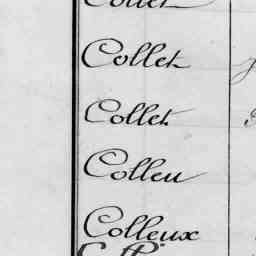 Collet
Collet
Collet
Colleu
Colleux